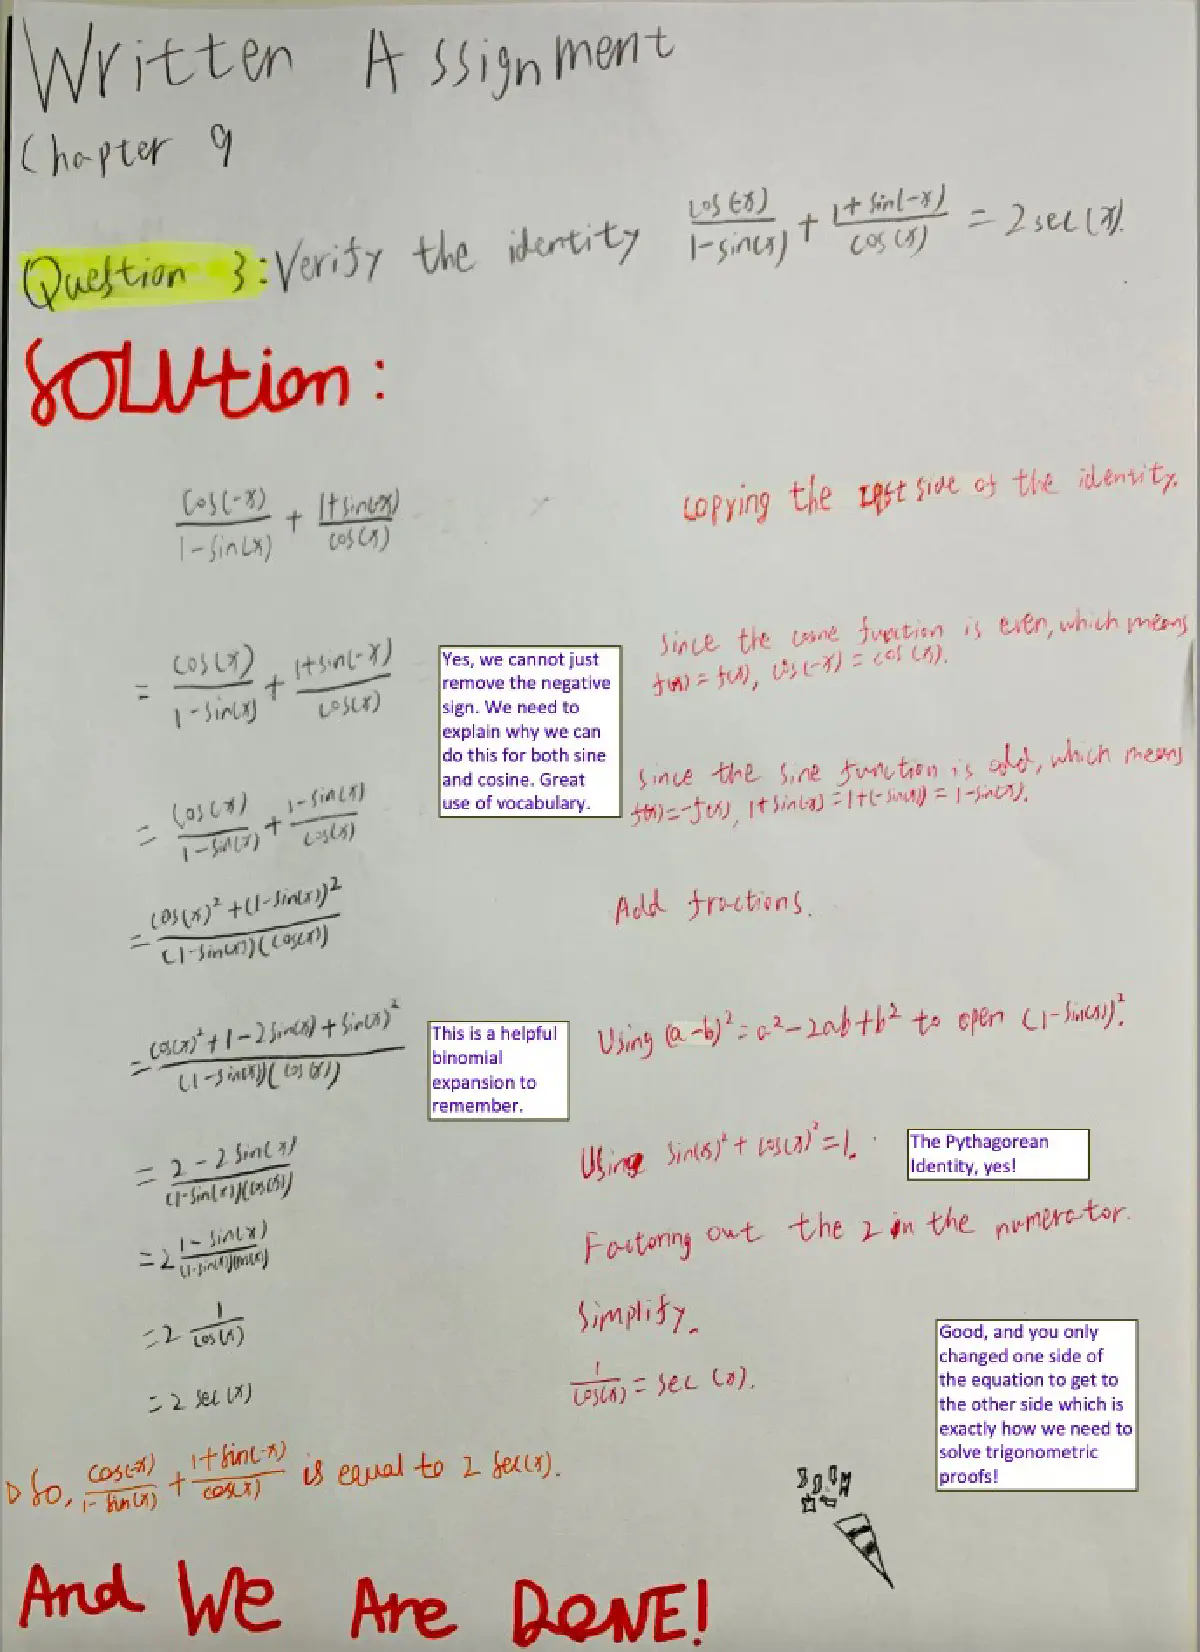 Written Assignment
Chapter 9
Question 3: Verify the identity cos(-x)/(1-sin(x)) + (1+sin(-x))/cos(x) = 2sec(x).
Solution:
cos(-x)/(1-sin(x)) + (1+sin(-x))/cos(x)
copying the left side of the identity.
= cos(x)/(1-sin(x)) + (1+sin(-x))/cos(x)
Yes, we cannot just
remove the negative
sign. We need to
explain why we can
do this for both sine
and cosine. Great
use of vocabulary.
Since the cosine function is even, which means
f(-x) = f(x), cos(-x) = cos(x).
= cos(x)/(1-sin(x)) + (1-sin(x))/cos(x)
Since the sine function is odd, which means
f(-x) = -f(x), 1+sin(-x) = 1+(-sin(x)) = 1-sin(x).
= (cos(x)²+(1-sin(x))²)/((1-sin(x))(cos(x)))
Add fractions.
= (cos(x)²+1-2sin(x)+sin(x)²)/((1-sin(x))(cos(x)))
This is a helpful
binomial
expansion to
remember.
Using (a-b)² = a²-2ab+b² to open (1-sin(x))².
= (2-2sin(x))/((1-sin(x))(cos(x)))
Using sin(x)² + cos(x)² = 1.
The Pythagorean
Identity, yes!
= 2 (1-sin(x))/((1-sin(x))(cos(x)))
Factoring out the 2 in the numerator.
= 2 1/cos(x)
Simplify.
= 2 sec(x)
1/cos(x) = sec(x).
Good, and you only
changed one side of
the equation to get to
the other side which is
exactly how we need to
solve trigonometric
proofs!
So, cos(-x)/(1-sin(x)) + (1+sin(-x))/cos(x) is equal to 2 sec(x).
And We Are DoNE!